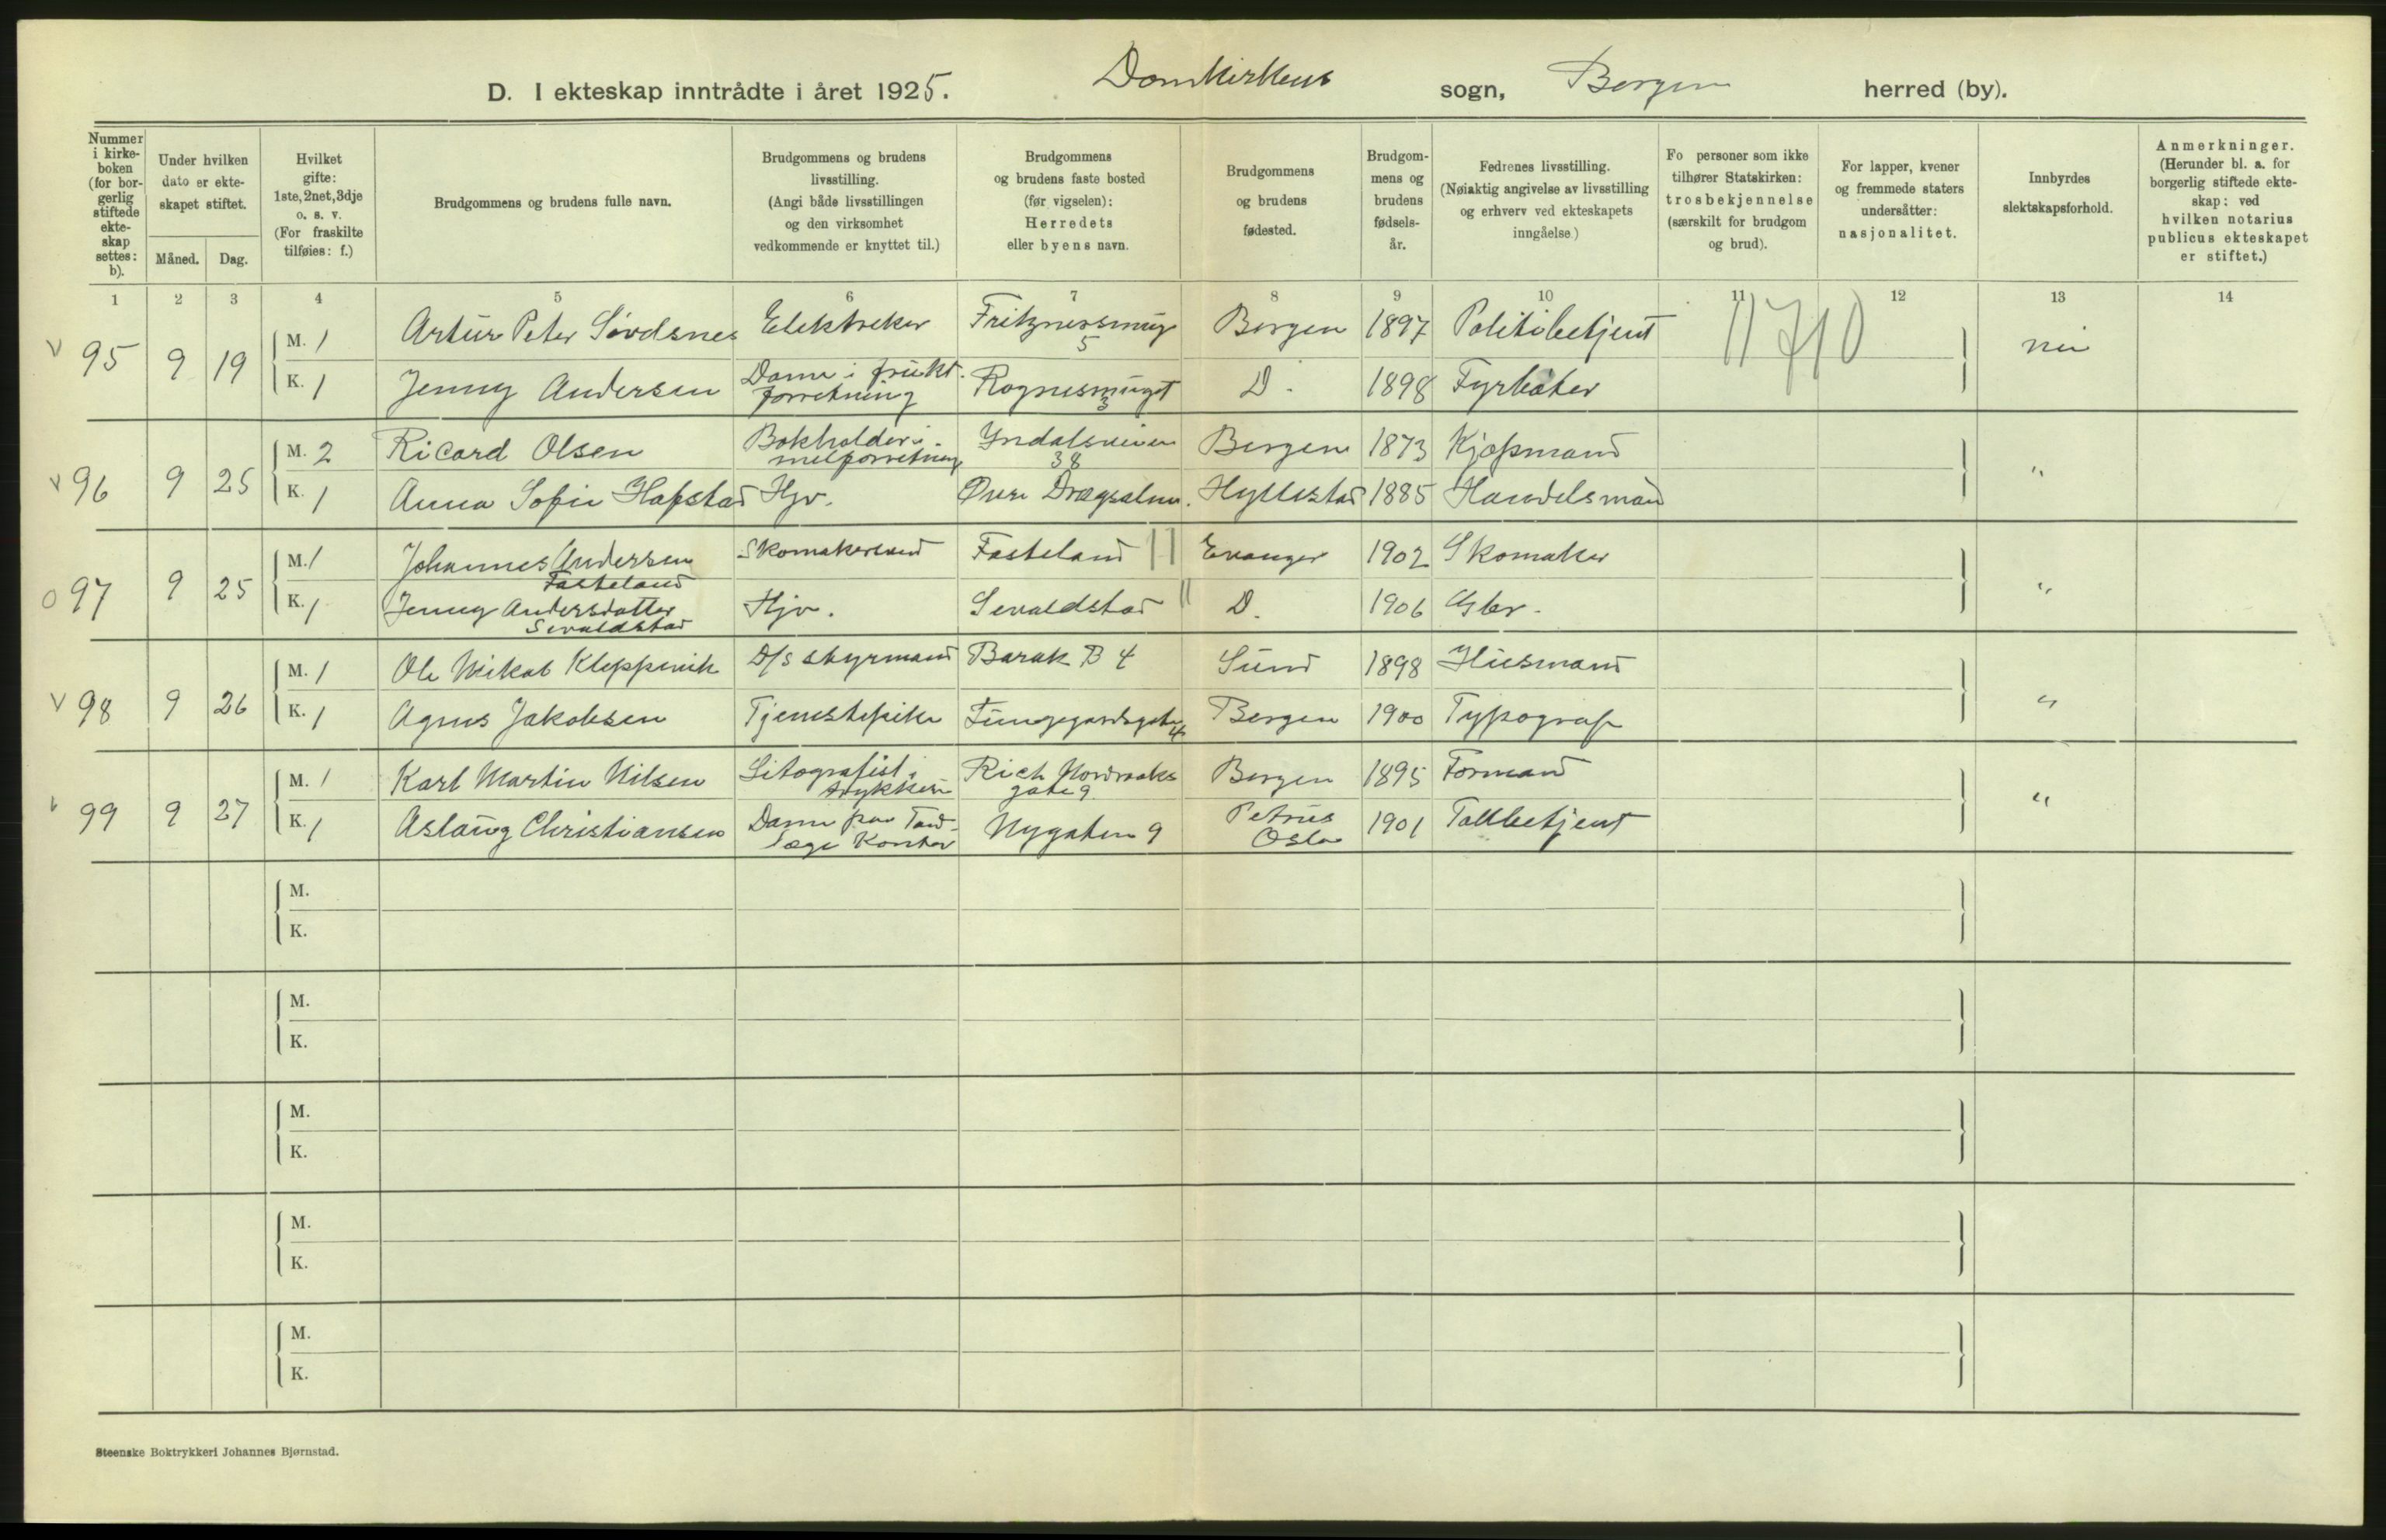 D. I ekteskap inntrådte i året 1925. Domkirkens sogn, Bergen herred (by).
Nummer i kirkeboken (for borgerlig stiftede ekteskap settes: b).
Under hvilken dato er ekteskapet stiftet.
Måned. Dag.
Hvilket gifte: 1ste, 2net, 3dje o. s. v. (For fraskilte tilføies: f.)
Brudgommens og brudens fulle navn.
Brudgommens og brudens livsstilling. (Angi både livsstillingen og den virksomhet vedkommende er knyttet til.)
Brudgommens og brudens faste bosted (før vigselen): Herredets eller byens navn.
Brudgommens og brudens fødested.
Brudgommens og brudens fødselsår.
Fedrenes livsstilling. (Nøiaktig angivelse av livsstilling og erhverv ved ekteskapets inngåelse.)
Fo personer som ikke tilhører Statskirken: trosbekjennelse (særskilt for brudgom og brud).
For lapper, kvener og fremmede staters undersåtter: nasjonalitet.
Innbyrdes slektskapsforhold.
Anmerkninger. (Herunder bl. a. for borgerlig stiftede ekteskap: ved hvilken notarius publicus ekteskapet er stiftet.)
1 2 3 4 5 6 7 8 9 10 11 12 13 14
v 95 9 19 M. 1 Artur Peter Søvdsnes Elektreker 5 Bergen 1897 Politibetjent 11710 nei
K. 1 Jenny Andersen Dame i frukt-forretning Rognesmuget 3 D. 1898 Fyrbøter
v 96 9 25 M. 2 Ricard Olsen Bokholder i melforretning Yndalsveien 38 Bergen 1873 Kjøpmand "
K. 1 Anna Sofie Hafstad Hjv. Øvre Dragsalm. Hyllestad 1885 Handelsmand
o 97 9 25 M. 1 Johannes Andersen Fasteland Skomakersvend Fasteland || Evanger 1902 Skomaker "
K. 1 Jenny Andersdatter Sevaldstad Hjv. Sevaldstad || D. 1906 Gbr.
v 98 9 26 M. 1 Ole Mikal Kleppevik D/S styrmand Barak B 4 Sund 1898 Husmand "
K. 1 Agnes Jakobsen Tjenestepike 4 Bergen 1900 Typograf
99 9 27 M. 1 Karl Martin Nilsen Litografist i trykkeri Rich Nordraaks gate 9 Bergen 1895 Formand "
K. 1 Aslaug Christiansen Dame paa Tandlæge Kontor Nygaten 9 Petrus Oslo 1901 Tollbetjent
M.
K.
M.
K.
M.
K.
M.
K.
M.
K.
Steenske Boktrykkeri Johannes Bjørnstad.